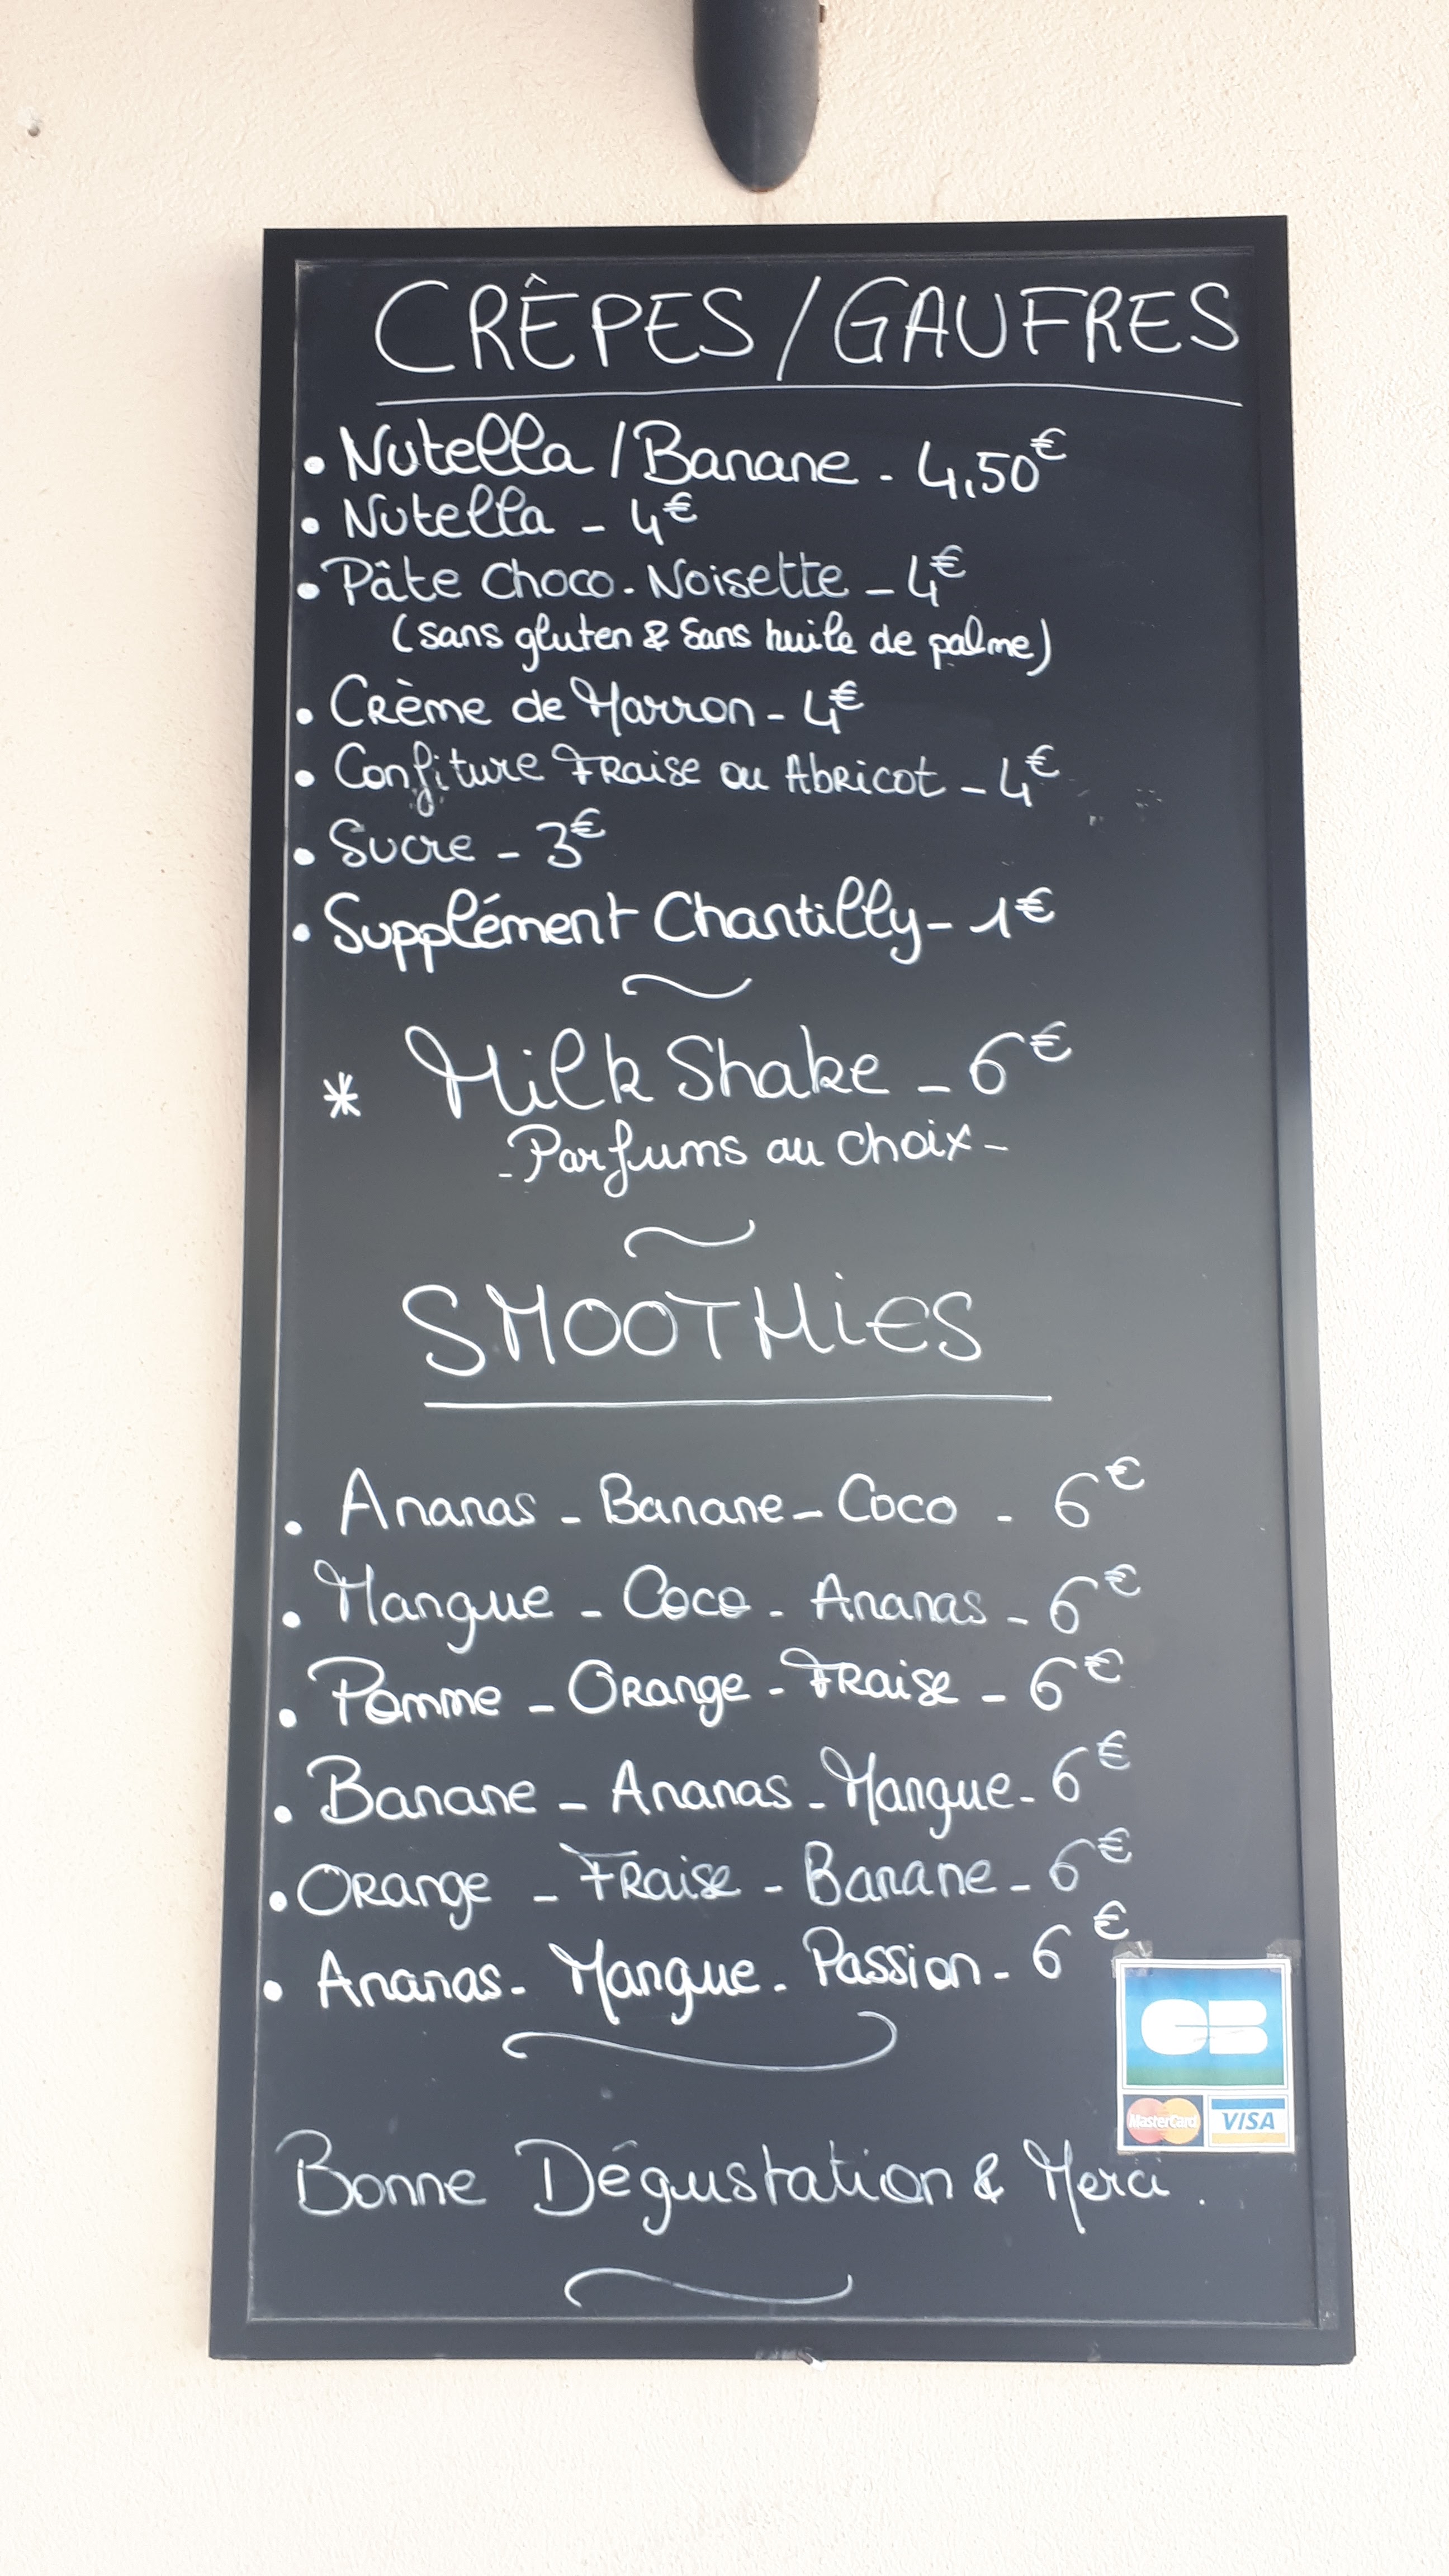 CRÊPES / GAUFRES
• Nutella / Banane - 4,50€
• Nutella - 4€
• Pâte Choco-Noisette - 4€
(sans gluten & sans huile de palme)
• Crème de Marron - 4€
• Confiture Fraise ou Abricot - 4€
• Sucre - 3€
• Supplément Chantilly - 1€
* Milk Shake - 6€
- Parfums au choix -
SMOOTHiES
• Ananas - Banane - Coco - 6€
• Mangue - Coco - Ananas - 6€
• Pomme - Orange - Fraise - 6€
• Banane - Ananas - Mangue - 6€
• Orange - Fraise - Banane - 6€
• Ananas - Mangue - Passion - 6€
CB
MasterCard VISA
Bonne Dégustation & Merci.